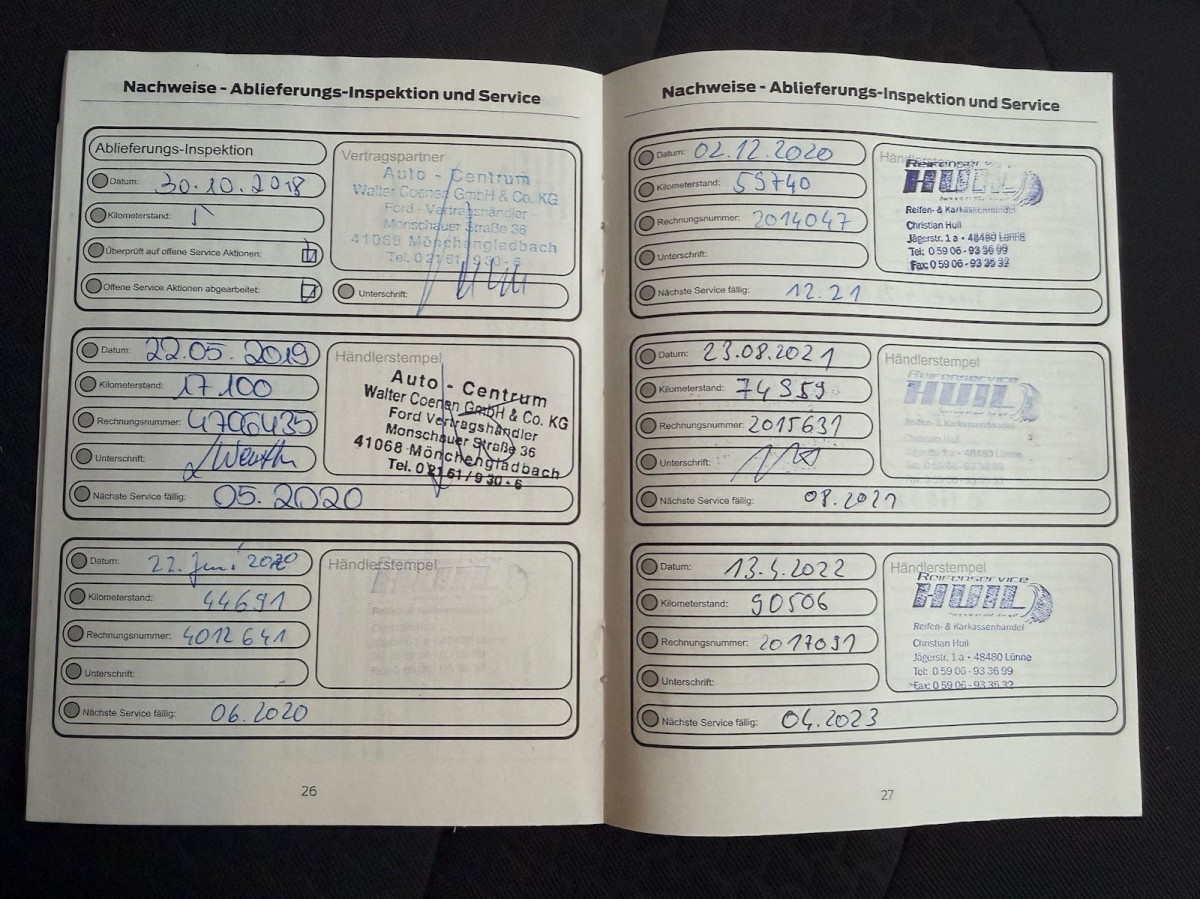 Nachweise - Ablieferungs-Inspektion und Service
Ablieferungs-Inspektion
Datum: 30.10.2018
Kilometerstand: 1
Überprüft auf offene Service Aktionen:
Offene Service Aktionen abgearbeitet:
Vertragspartner
Auto - Centrum
Walter Coenen GmbH & Co. KG
Ford - Vertragshändler
Monschauer Straße 36
41068 Mönchengladbach
Tel. 0 21 61 / 9 30 - 6
Unterschrift:
Datum: 22.05.2019
Kilometerstand: 17100
Rechnungsnummer: 4706435
Unterschrift:
Nächste Service fällig: 05.2020
Händlerstempel
Auto - Centrum
Walter Coenen GmbH & Co. KG
Ford Vertragshändler
Monschauer Straße 36
41068 Mönchengladbach
Tel. 0 21 61 / 9 30 - 6
Datum: 22. Juni 2020
Kilometerstand: 44691
Rechnungsnummer: 4012641
Unterschrift:
Nächste Service fällig: 06.2020
Händlerstempel
HUIL
26
Nachweise - Ablieferungs-Inspektion und Service
Datum: 02.12.2020
Kilometerstand: 59740
Rechnungsnummer: 2014047
Unterschrift:
Nächste Service fällig: 12.21
Händlerstempel
Reifenservice
HUIL
Reifen- & Karkassenhandel
Christian Huil
Jägerstr. 1 a • 48480 Lünne
Tel: 0 59 06 - 93 36 99
Fax: 0 59 06 - 93 35 32
Datum: 23.08.2021
Kilometerstand: 74959
Rechnungsnummer: 2015631
Unterschrift:
Nächste Service fällig: 08.2021
Händlerstempel
Reifenservice
HUIL
Reifen- & Karkassenhandel
Christian Huil
Datum: 13.4.2022
Kilometerstand: 90506
Rechnungsnummer: 2017091
Unterschrift:
Nächste Service fällig: 04.2023
Händlerstempel
Reifenservice
HUIL
Reifen- & Karkassenhandel
Christian Huil
Jägerstr. 1 a • 48480 Lünne
Tel: 0 59 06 - 93 36 99
Fax: 0 59 06 - 93 35 32
27